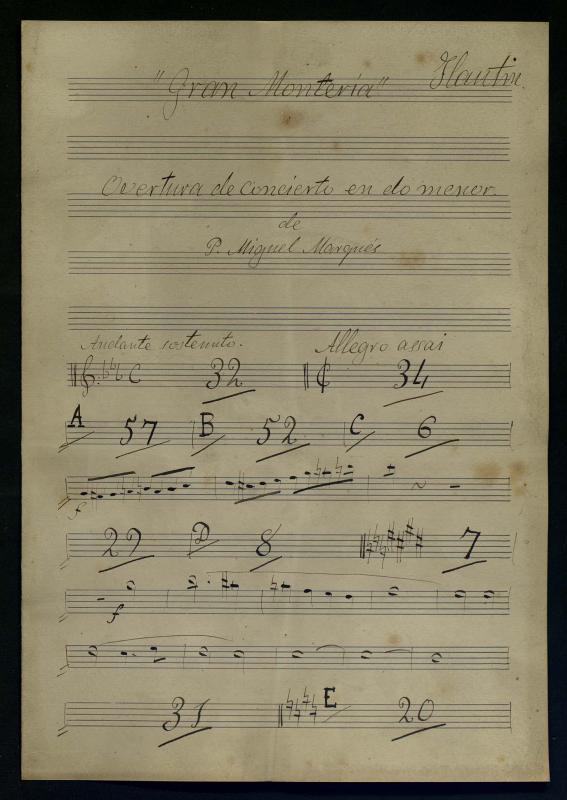 "Gran Montería" Flautin.
Overtura de concierto en do menor.
de
P. Miguel Marqués
Andante sostenuto. Allegro assai
C 32 34
A 57 B 52 C 6
f
22 D 8 7
f
31 E 20